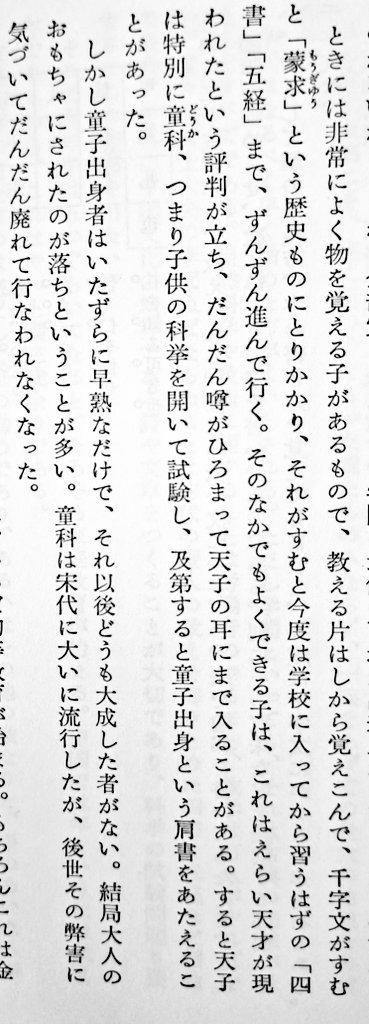 ときには非常によく物を覚える子があるもので、教える片はしから覚えこんで、千字文がすむ
と「蒙求」という歴史ものにとりかかり、それがすむと今度は学校に入ってから習うはずの「四
書」「五経」まで、ずんずん進んで行く。そのなかでもよくできる子は、これはえらい天才が現
われたという評判が立ち、だんだん噂がひろまって天子の耳にまで入ることがある。すると天子
は特別に童科、つまり子供の科挙を開いて試験し、及第すると童子出身という肩書をあたえるこ
とがあった。
しかし童子出身者はいたずらに早熟なだけで、それ以後どうも大成した者がない。結局大人の
おもちゃにされたのが落ちということが多い。童科は宋代に大いに流行したが、後世その弊害に
気づいてだんだん廃れて行なわれなくなった。